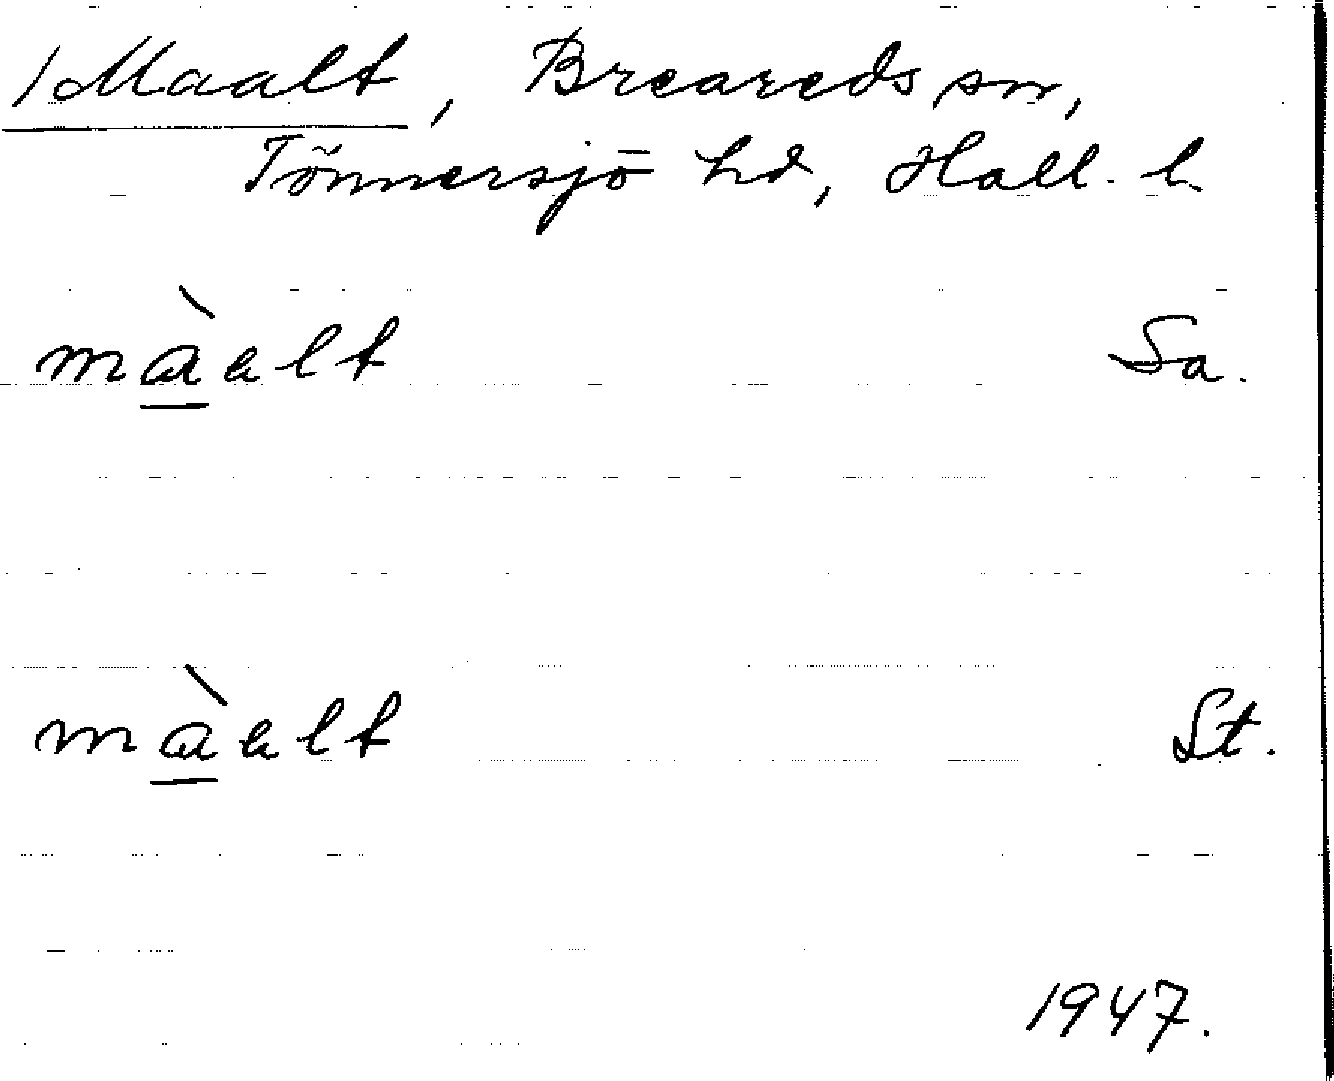 /Maalt, Breareds sn,
Tönnersjö hd, Hall. l.
màalt Sa.
màalt St.
1947.